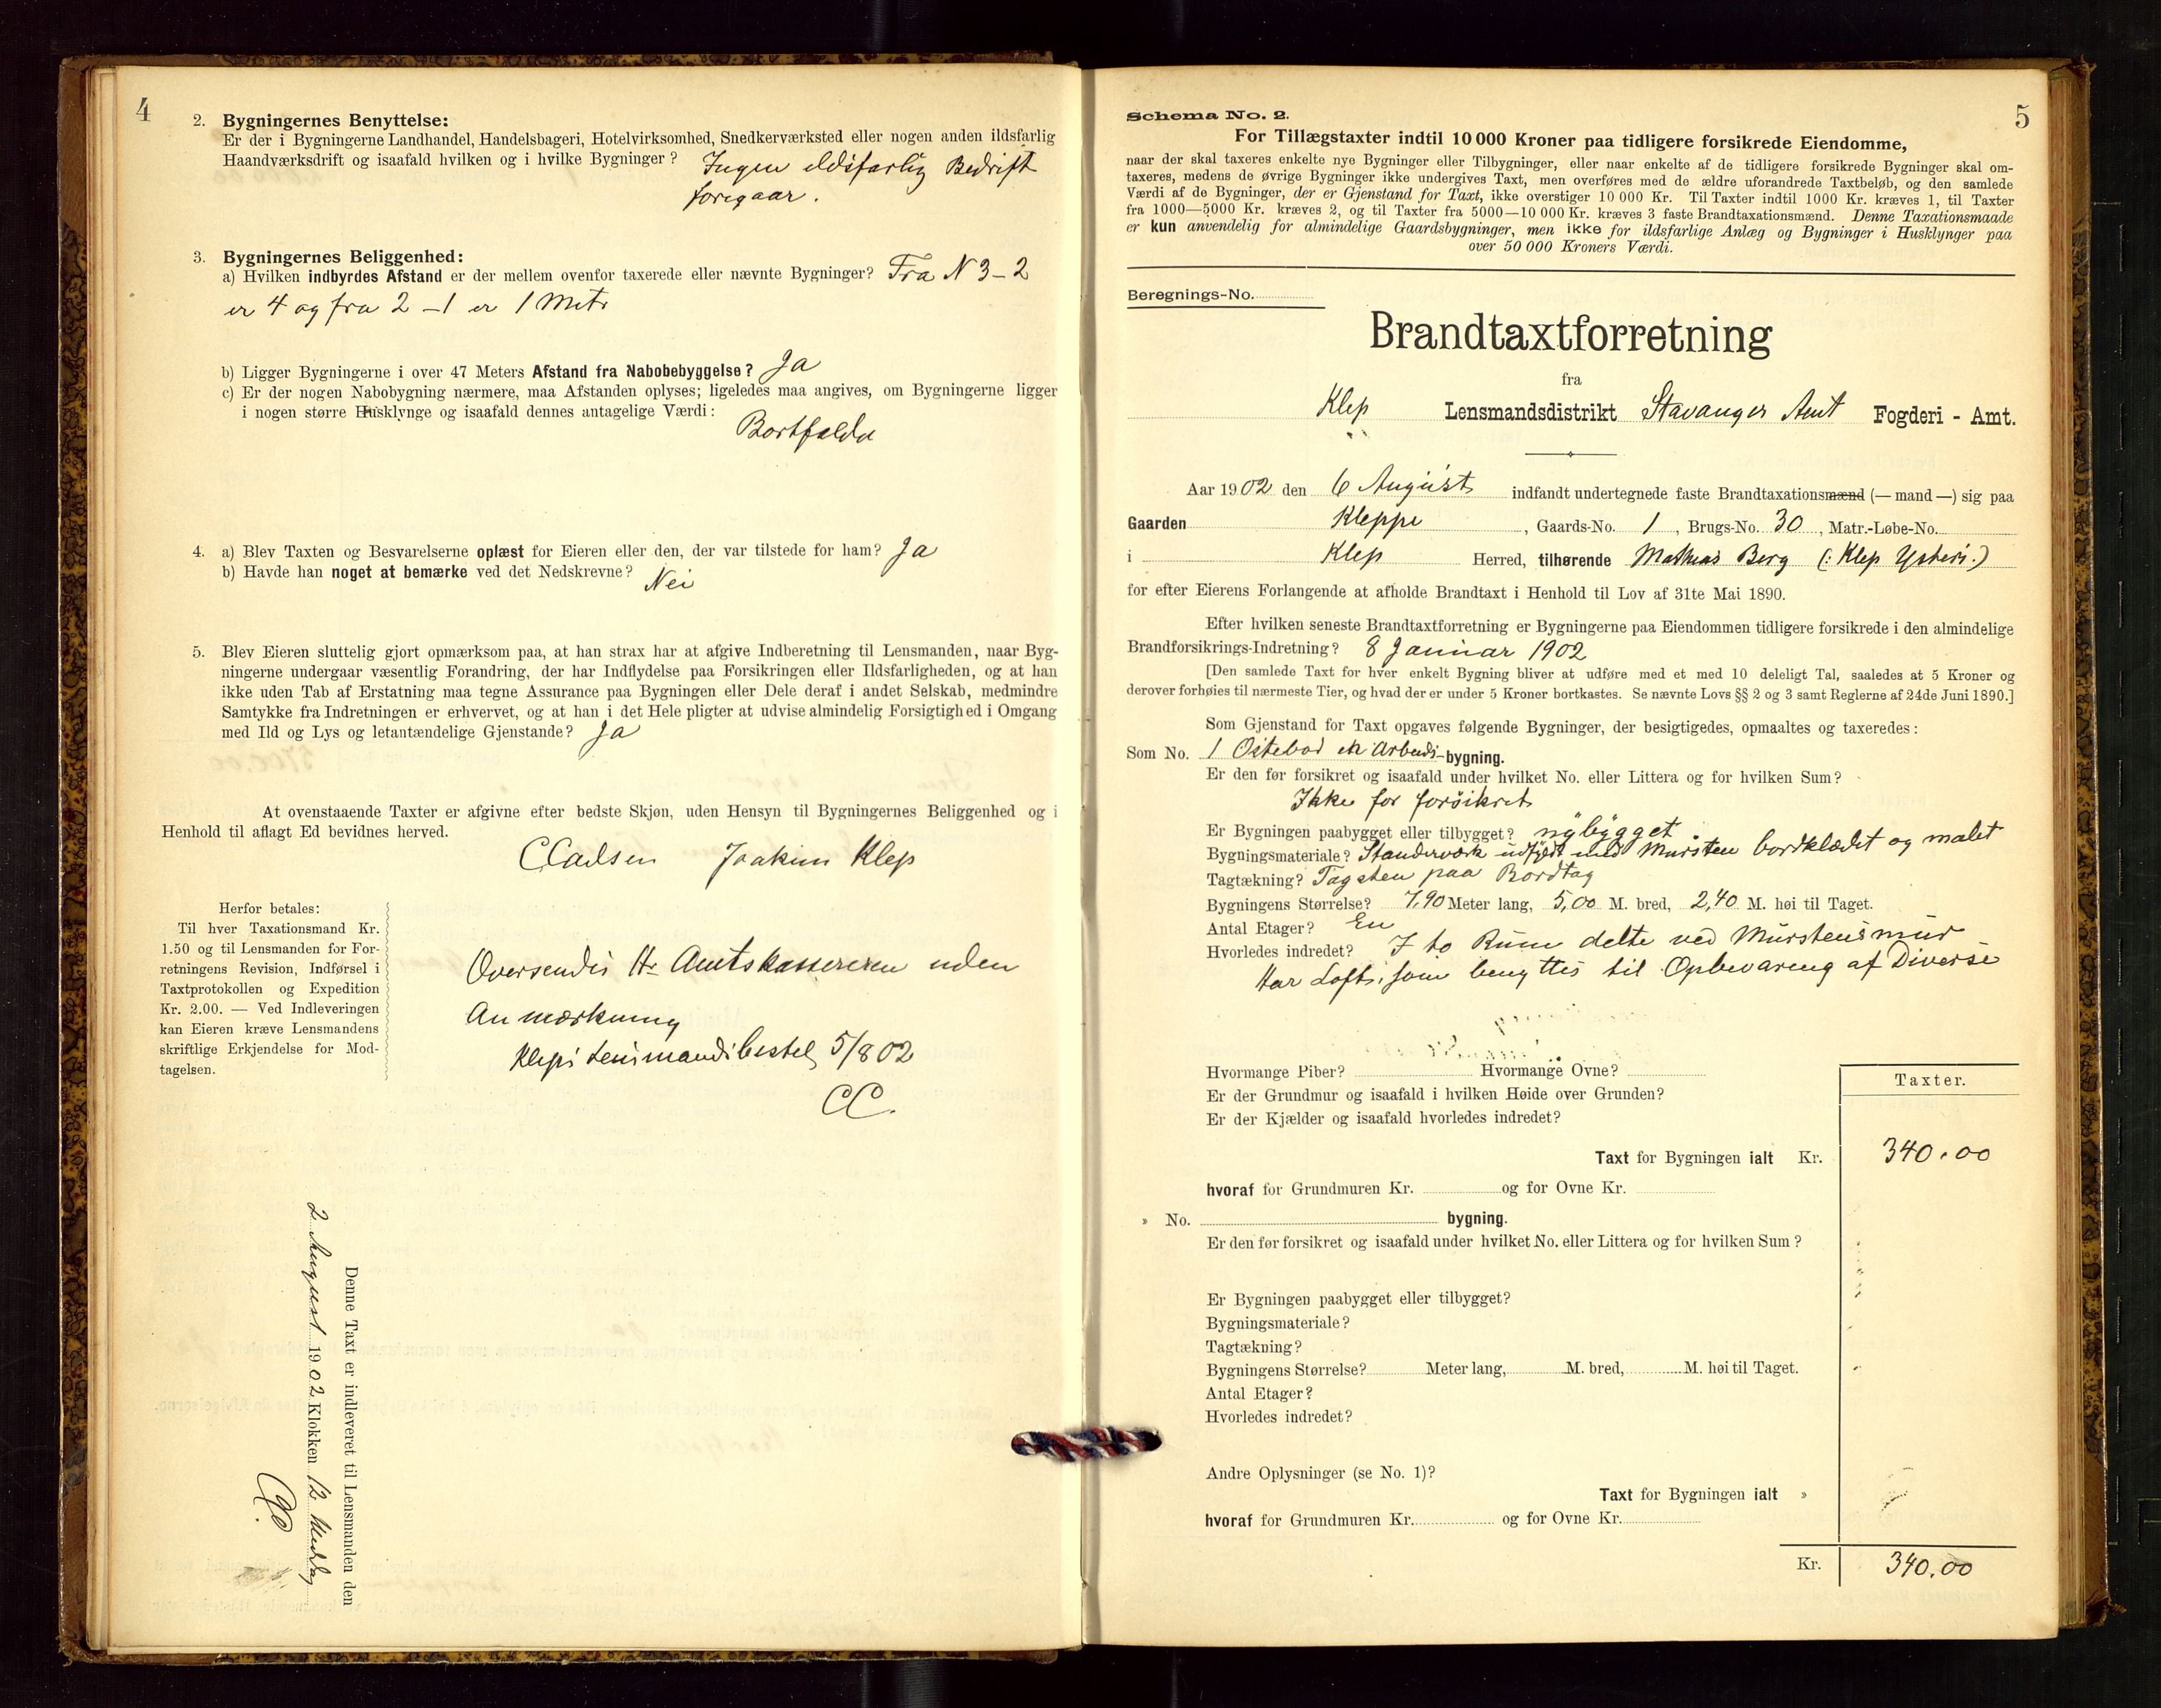 4
2. Bygningernes Benyttelse:
Er der i Bygningerne Landhandel, Handelsbageri, Hotelvirksomhed, Snedkerværksted eller nogen anden ildsfarlig
Haandværksdrift og isaafald hvilken og i hvilke Bygninger? Ingen ildsfarlig Bedrift
foregaar.
3. Bygningernes Beliggenhed:
a) Hvilken indbyrdes Afstand er der mellem ovenfor taxerede eller nævnte Bygninger? Fra N 3-2
er 4 og fra 2-1 er 1 Metr
b) Ligger Bygningerne i over 47 Meters Afstand fra Nabobebyggelse? Ja
c) Er der nogen Nabobygning nærmere, maa Afstanden oplyses; ligeledes maa angives, om Bygningerne ligger
i nogen større Husklynge og isaafald dennes antagelige Værdi:
Bortfalder
4. a) Blev Taxten og Besvarelserne oplæst for Eieren eller den, der var tilstede for ham? Ja
b) Havde han noget at bemærke ved det Nedskrevne? Nei
5. Blev Eieren sluttelig gjort opmærksom paa, at han strax har at afgive Indberetning til Lensmanden, naar Byg-
ningerne undergaar væsentlig Forandring, der har Indflydelse paa Forsikringen eller Ildsfarligheden, og at han
ikke uden Tab af Erstatning maa tegne Assurance paa Bygningen eller Dele deraf i andet Selskab, medmindre
Samtykke fra Indretningen er erhvervet, og at han i det Hele pligter at udvise almindelig Forsigtighed i Omgang
med Ild og Lys og letantændelige Gjenstande? Ja
At ovenstaaende Taxter er afgivne efter bedste Skjøn, uden Hensyn til Bygningernes Beliggenhed og i
Henhold til aflagt Ed bevidnes herved.
C Carlsen Joakim Klep
Herfor betales:
Til hver Taxationsmand Kr.
1.50 og til Lensmanden for For-
retningens Revision, Indførsel i
Taxtprotokollen og Expedition
Kr. 2.00. — Ved Indleveringen
kan Eieren kræve Lensmandens
skriftlige Erkjendelse for Mod-
tagelsen.
Oversendes Hr Amtskassereren uden
Anmærkning
Kleps Lensmandsbestel 5/8 02
CC.
Denne Taxt er indleveret til Lensmanden den
2 August 1902 Klokken 12 Middag
CC.
5
Schema No. 2.
For Tillægstaxter indtil 10 000 Kroner paa tidligere forsikrede Eiendomme,
naar der skal taxeres enkelte nye Bygninger eller Tilbygninger, eller naar enkelte af de tidligere forsikrede Bygninger skal om-
taxeres, medens de øvrige Bygninger ikke undergives Taxt, men overføres med de ældre uforandrede Taxtbeløb, og den samlede
Værdi af de Bygninger, der er Gjenstand for Taxt, ikke overstiger 10 000 Kr. Til Taxter indtil 1000 Kr. kræves 1, til Taxter
fra 1000—5000 Kr. kræves 2, og til Taxter fra 5000—10 000 Kr. kræves 3 faste Brandtaxationsmænd. Denne Taxationsmaade
er kun anvendelig for almindelige Gaardsbygninger, men ikke for ildsfarlige Anlæg og Bygninger i Husklynger paa
over 50 000 Kroners Værdi.
Beregnings-No.
Brandtaxtforretning
fra
Klep Lensmandsdistrikt Stavanger Amt Fogderi - Amt.
Aar 1902 den 6 August indfandt undertegnede faste Brandtaxationsmænd (— mand —) sig paa
Gaarden Kleppe, Gaards-No. 1, Brugs-No. 30, Matr.-Løbe-No.
i Klep Herred, tilhørende Mathias Berg (: Klep Ysteri :)
for efter Eierens Forlangende at afholde Brandtaxt i Henhold til Lov af 31te Mai 1890.
Efter hvilken seneste Brandtaxtforretning er Bygningerne paa Eiendommen tidligere forsikrede i den almindelige
Brandforsikrings-Indretning? 8 Januar 1902
[Den samlede Taxt for hver enkelt Bygning bliver at udføre med et med 10 deleligt Tal, saaledes at 5 Kroner og
derover forhøies til nærmeste Tier, og hvad der er under 5 Kroner bortkastes. Se nævnte Lovs §§ 2 og 3 samt Reglerne af 24de Juni 1890.]
Som Gjenstand for Taxt opgaves følgende Bygninger, der besigtigedes, opmaaltes og taxeredes:
Som No. 1 Ostebod en Arbeids-bygning.
Er den før forsikret og isaafald under hvilket No. eller Littera og for hvilken Sum?
Ikke før forsikret
Er Bygningen paabygget eller tilbygget? nybygget
Bygningsmateriale? Standerværk udfyldt med Mursten bordklædet og malet
Tagtækning? Tagsten paa Bordtag
Bygningens Størrelse? 7,90 Meter lang, 5,00 M. bred, 2,40 M. høi til Taget.
Antal Etager? En
Hvorledes indredet? I to Rum delte ved Murstensmur
Har Loft, som benyttes til Opbevaring af Diverse
Hvormange Piber? Hvormange Ovne?
Taxter.
Er der Grundmur og isaafald i hvilken Høide over Grunden?
Er der Kjælder og isaafald hvorledes indredet?
Taxt for Bygningen ialt Kr. 340.00
hvoraf for Grundmuren Kr. og for Ovne Kr.
» No. bygning.
Er den før forsikret og isaafald under hvilket No. eller Littera og for hvilken Sum?
Er Bygningen paabygget eller tilbygget?
Bygningsmateriale?
Tagtækning?
Bygningens Størrelse? Meter lang, M. bred, M. høi til Taget.
Antal Etager?
Hvorledes indredet?
Andre Oplysninger (se No. 1)?
Taxt for Bygningen ialt »
hvoraf for Grundmuren Kr. og for Ovne Kr.
Kr. 340.00